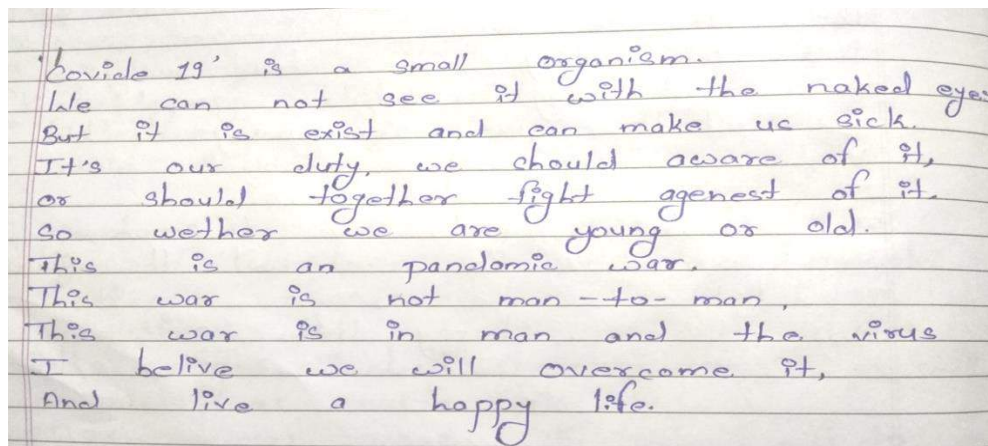 'Covide 19' is a small organism.
We can not see it with the naked eyes
But it is exist and can make us sick.
It's our duty, we should aware of it,
or should together fight agenest of it.
so wether we are young or old.
This is an pandomic war.
This war is not man-to-man,
This war is in man and the virus
I belive we will overcome it,
And live a happy life.